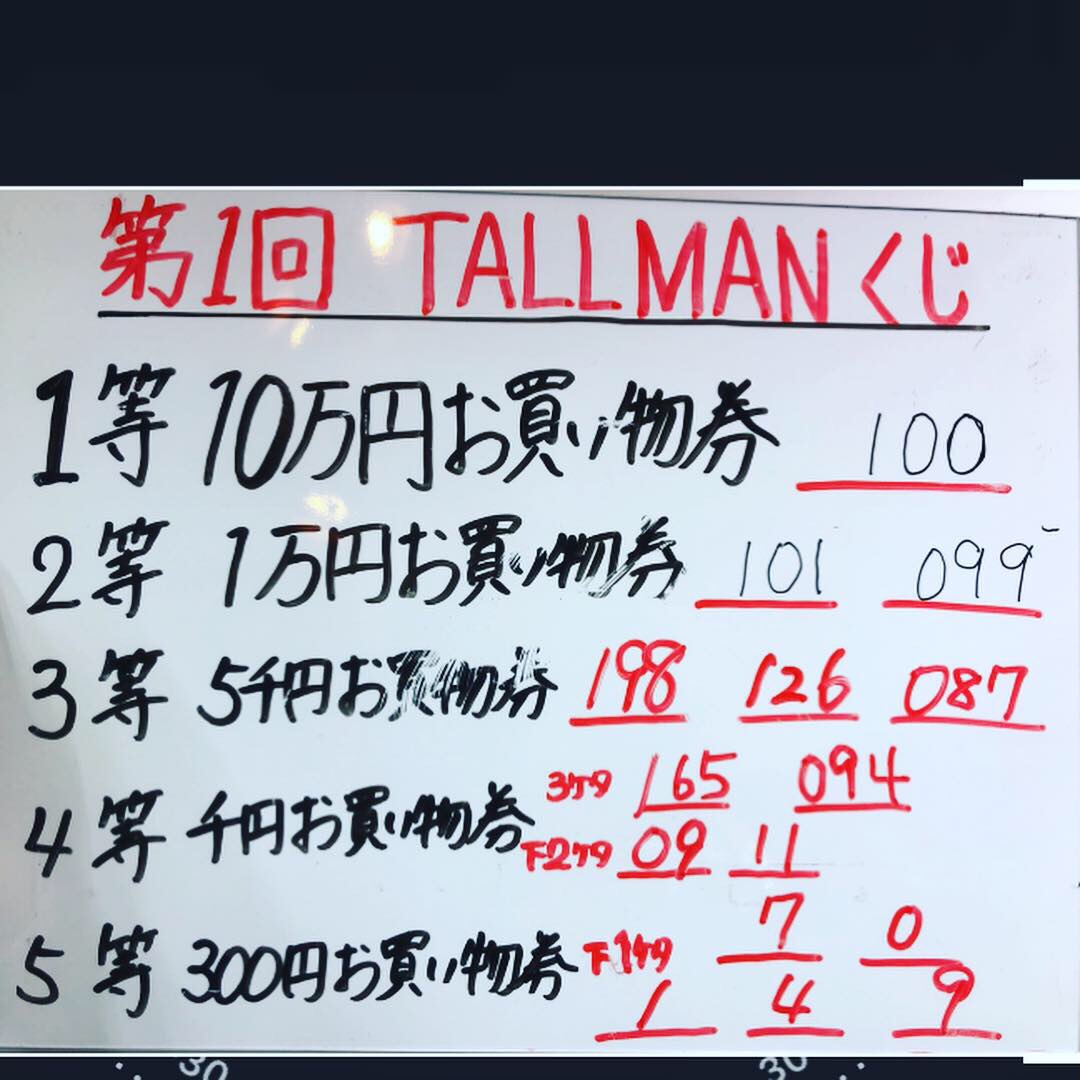 第1回 TALLMANくじ
1等 10万円お買い物券 100
2等 1万円お買い物券 101 099
3等 5千円お買い物券 198 126 087
4等 千円お買い物券 3ケタ 165 094
下2ケタ 09 11
5等 300円お買い物券 下1ケタ 7 0
1 4 9
30 30